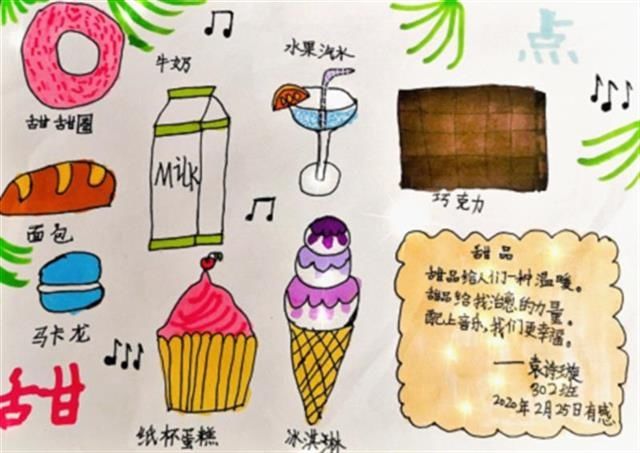 牛奶
水果汽水
点
甜甜圈
Milk
巧克力
面包
马卡龙
甜
纸杯蛋糕
冰淇琳
甜品
甜品给人们一种温暖。
甜品给我治愈的力量。
配上音乐，我们更幸福。
——袁诗璇
302班
2020年2月25日有感